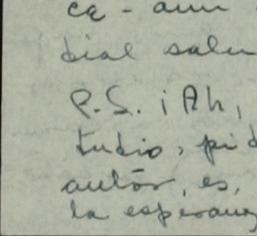 ce - aun
dial salu
P.S. ¡Ah,
tudio, pi
autor, es,
la esperanz